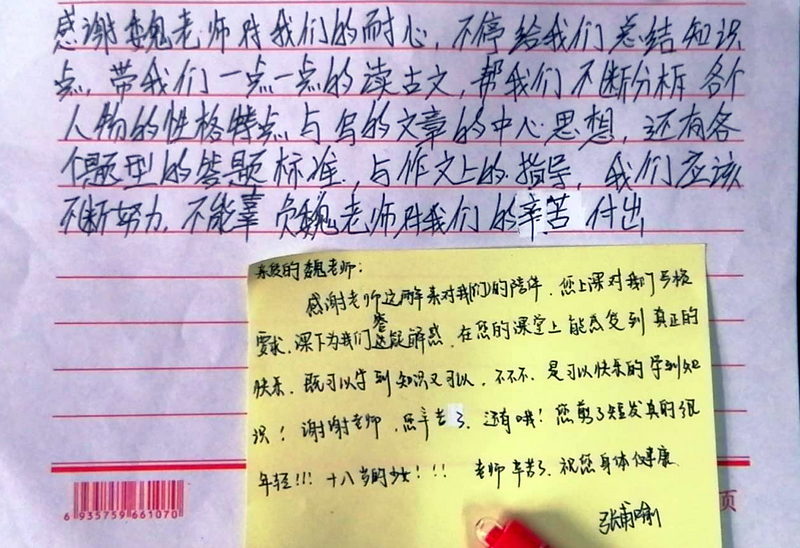 感谢魏老师对我们的耐心,不停给我们总结知识
点,带我们一点一点的读古文,帮我们不断分析各个
人物的性格特点与写的文章的中心思想,还有各
个题型的答题标准,与作文上的指导,我们应该
不断努力,不能辜负魏老师对我们的辛苦付出
亲爱的魏老师:
感谢老师这两年来对我们的陪伴,您上课对我们严格
要求,课下为我们答疑解惑,在您的课堂上能感受到真正的
快乐,既可以学到知识又可以,不不不,是可以快乐的学到知
识!谢谢老师,您辛苦了,还有哦!您剪了短发真的很
年轻!!!十八岁的少女!!! 老师辛苦了,祝您身体健康
6 935759 661070
页